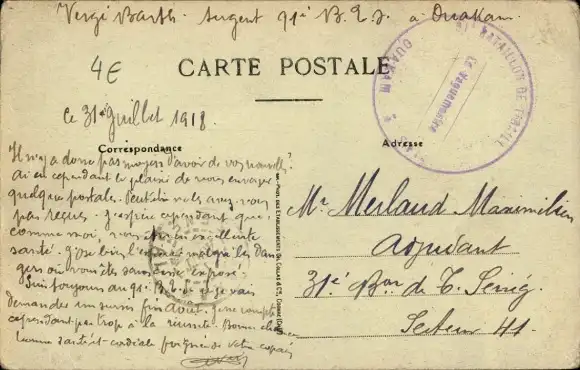 Vergi Barth. Sergent 91e B. a Ouakam.
4€
CARTE POSTALE
BATAILLON DE TIRAILL
OUAKAM
Le Vaguemestre
ce 31 Juillet 1918.
Correspondance
Adresse
Il n'y a donc pas moyen d'avoir de vos nouvelles?
ai eu cependant le plaisir de vous envoyer
quelque postale. Peut être ne les avez vous
pas reçues. J'espère cependant que,
comme moi, vous êtes en excellente
santé. J'ose bien l'espérer malgré les dan
gers où vous êtes sans cesse exposé.
Suis toujours au 91e B. et je vais
demander un sursis fin Août. Je ne compte
cependant pas trop à la réussite. Bonne chance
bonne santé et cordiale poignée de votre copain
Mr Merlaud Maximilien
Adjudant
31e Bon de T. Sénég.
Secteur 41.